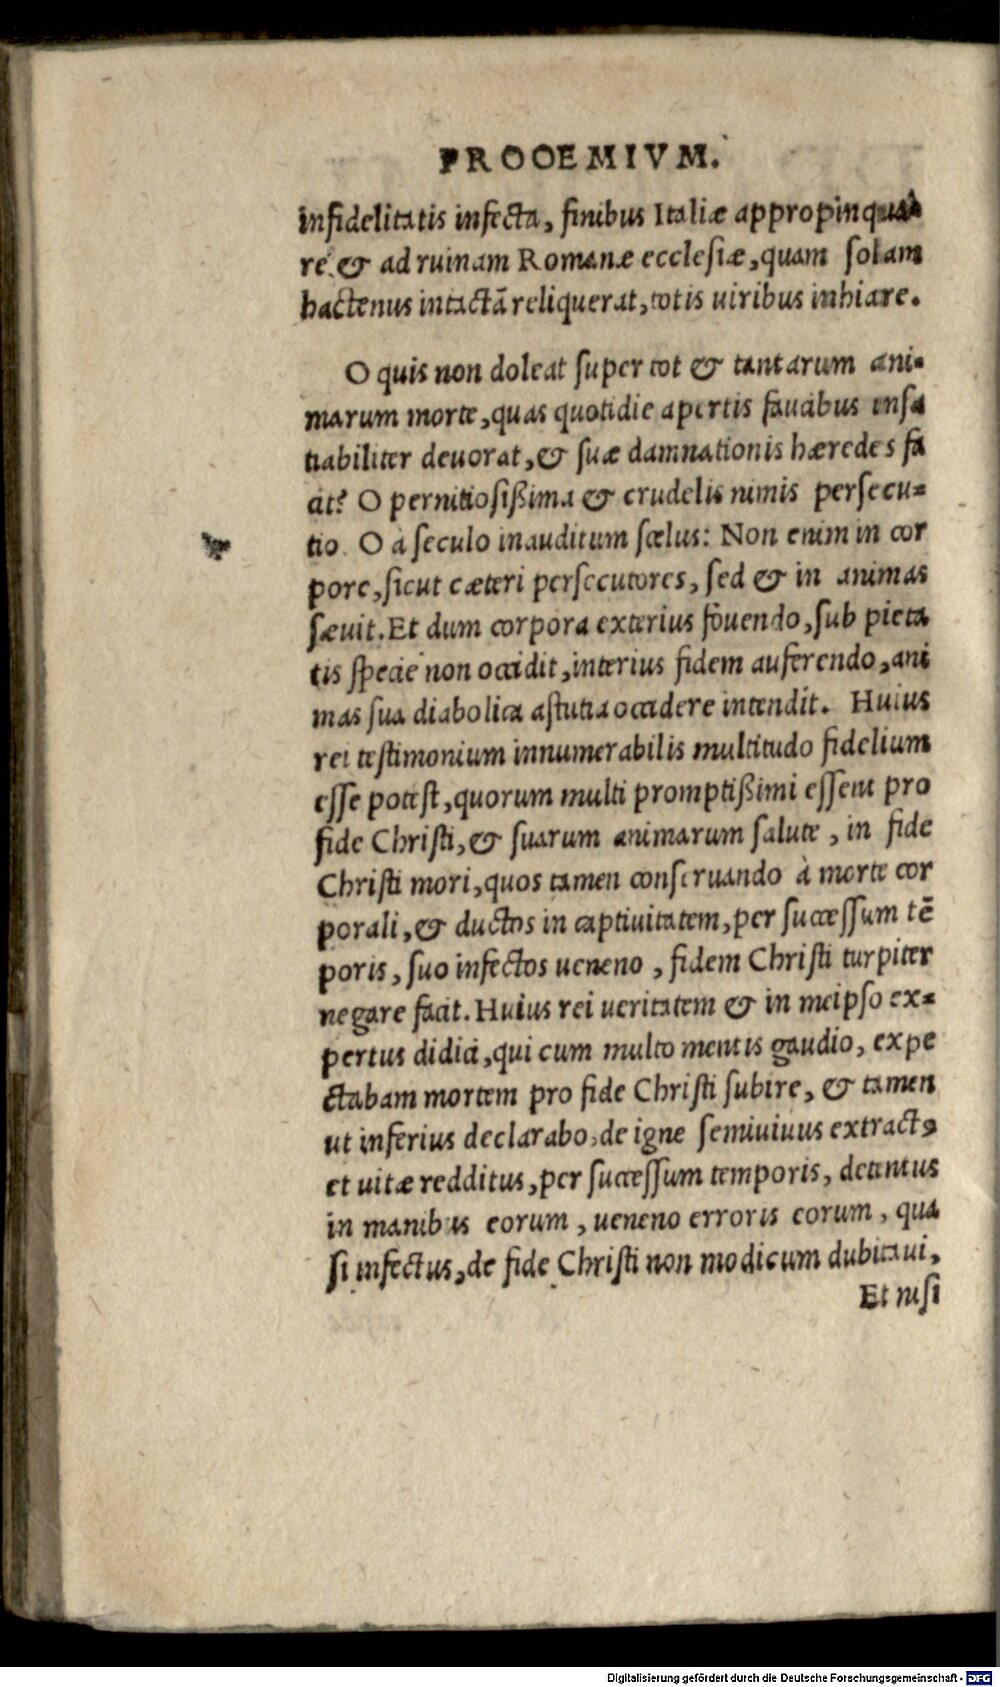 PROOEMIVM.
infidelitatis infecta, finibus Italiæ appropinqua
re & ad ruinam Romanæ ecclesiæ, quam solam
hactenus intactā reliquerat, totis uiribus inhiare.
O quis non doleat super tot & tantarum ani-
marum morte, quas quotidie apertis faucibus insa
tiabiliter deuorat, & suæ damnationis hæredes fa
cit? O pernitiosißima & crudelis nimis persecu-
tio. O à seculo inauditum scelus: Non enim in cor
pore, sicut cæteri persecutores, sed & in animas
sæuit. Et dum corpora exterius fouendo, sub pieta
tis specie non occidit, interius fidem auferendo, ani
mas sua diabolica astutia occidere intendit. Huius
rei testimonium innumerabilis multitudo fidelium
esse potest, quorum multi promptißimi essent pro
fide Christi, & suarum animarum salute, in fide
Christi mori, quos tamen conseruando à morte cor
porali, & ductos in captiuitatem, per successum tē
poris, suo infectos ueneno, fidem Christi turpiter
negare facit. Huius rei ueritatem & in meipso ex-
pertus didici, qui cum multo mentis gaudio, expe
ctabam mortem pro fide Christi subire, & tamen
ut inferius declarabo, de igne semiuiuus extractꝰ
et uitæ redditus, per successum temporis, detentus
in manibus eorum, ueneno erroris eorum, qua
si infectus, de fide Christi non modicum dubitaui,
Et nisi
Digitalisierung gefördert durch die Deutsche Forschungsgemeinschaft - DFG